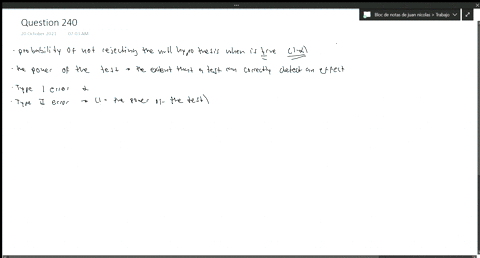 Question 240
20 October 2023 07:53 AM
Bloc de notas de juan nicolas » Trabajo
· probability of not rejecting the null hypothesis when is true (1-α)
· the power of the test → the extent that a test can correctly detect an effect
· Type I error α
· Type II error → (1 - the power of the test)